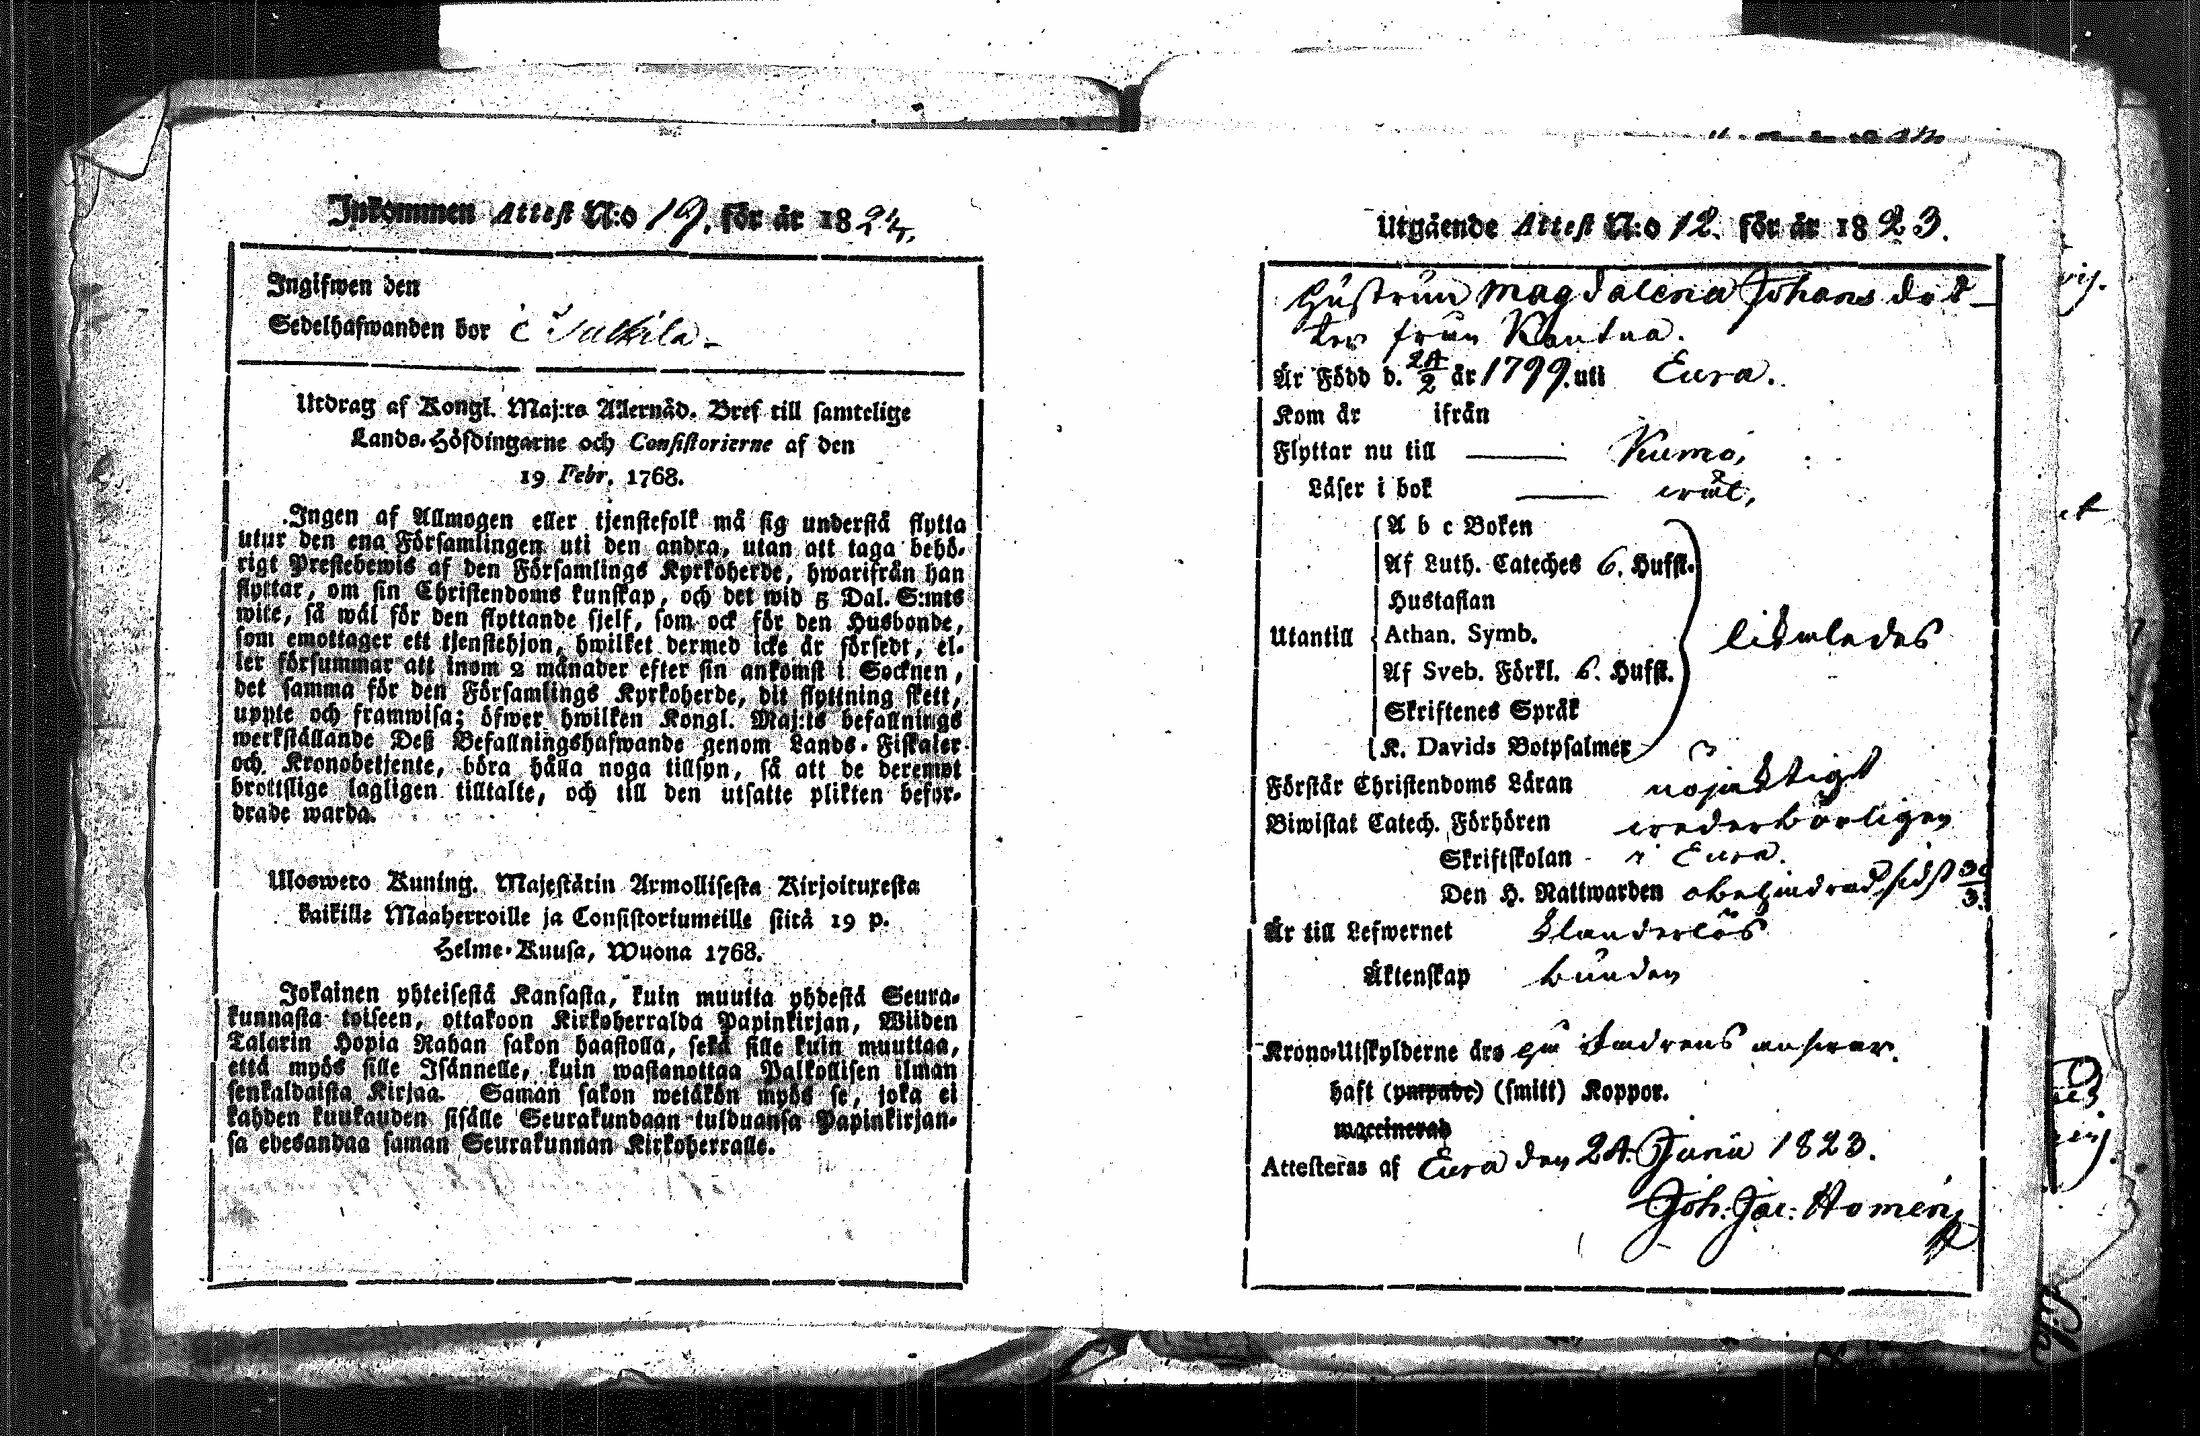 Inkommen Attest N:o 19. för år 1824.
Ingifwen den
Sedelhafwanden bor i
Utdrag af Kongl. Maj:ts Allernåd. Bref till samtelige
Lands-Höfdingarne och Consistorierne af den
19 Febr. 1768.
Ingen af Allmogen eller tjenstefolk må sig understå flytta
utur den ena Församlingen uti den andra, utan att taga behö-
rigt Prestebewis af den Församlings Kyrkoherde, hwarifrån han
flyttar, om sin Christendoms kunskap, och det wid 5 Dal. S:mts
wite, så wäl för den flyttande sjelf, som ock för den Husbonde,
som emottager ett tjenstehjon, hwilket dermed icke är försedt, el-
ler försummar att inom 2 månader efter sin ankomst i Socknen,
det samma för den Församlings Kyrkoherde, dit flyttning skett,
uppte och framwisa; öfwer hwilken Kongl. Maj:ts befallnings
werkställande Deß Befallningshafwande genom Lands-Fiskaler
och Kronobetjente, böra hålla noga tillsyn, så att de deremot
brottslige lagligen tilltalte, och till den utsatte plikten befor-
drade warda.
Uloswero Kuning. Majestätin Armollisesta Kirjoituxesta
kaikille Maaherroille ja Consistoriumeille siitä 19 p.
Helme-Kuusa, Wuona 1768.
Jokainen yhteisestä Kansasta, kuin muutta yhdestä Seura-
kunnasta toiseen, ottakoon Kirkoherralda Papinkirjan, Wiiden
Talarin Hopia Rahan sakon haastolla, sekä sille kuin muuttaa,
että myös sille Isännelle, kuin wastanottaa Palkollisen ilman
senkaldaista Kirjaa. Saman sakon wetäkön myös se, joka ei
kahden kuukauden sisälle Seurakundaan tulduansa Papinkirjan-
sa edesandaa saman Seurakunnan Kirkoherralle.
Utgående Attest N:o 12. för år 1823.
Hustrun Magdalena Johans dot-
ter från Kantua.
Är Född d. 24/2 år 1799. uti Eura.
Kom år ifrån
Flyttar nu till — Kumo,
Läser i bok —
Utantill
A b c Boken
Af Luth. Cateches 6. Hufst.
Hustaflan
Athan. Symb.
Af Sveb. Förkl. 6. Hufst.
Skriftenes Språk
K. Davids Botpsalmer
likaledes
Förstår Christendoms Läran nöjaktigt
Biwistat Catech. Förhören wederbörligen
Skriftskolan i Eura.
Den H. Nattwarden obehindrad, sidst
Är till Lefwernet klanderlös
Äktenskap bunden
Krono-Utskylderne äro på andras answar.
haft (ympade) (smitt) Koppor.
waccinerad
Attesteras af Eura den 24. Junii 1823.
Joh: Jac: Homén